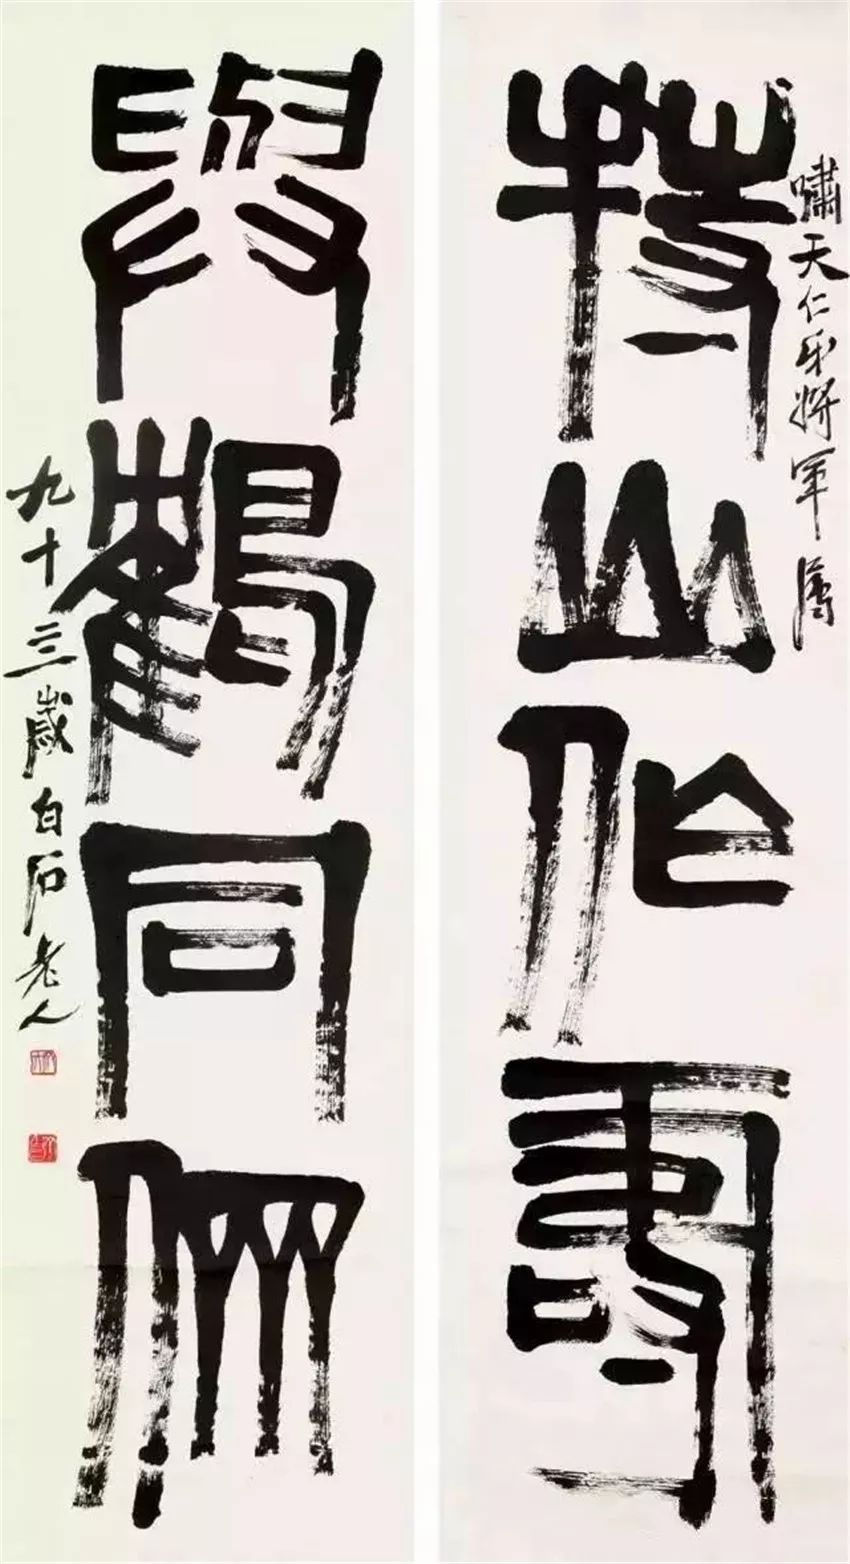 持山作壽
嘯天仁弟將軍屬
與鶴同儕
九十三歲白石老人